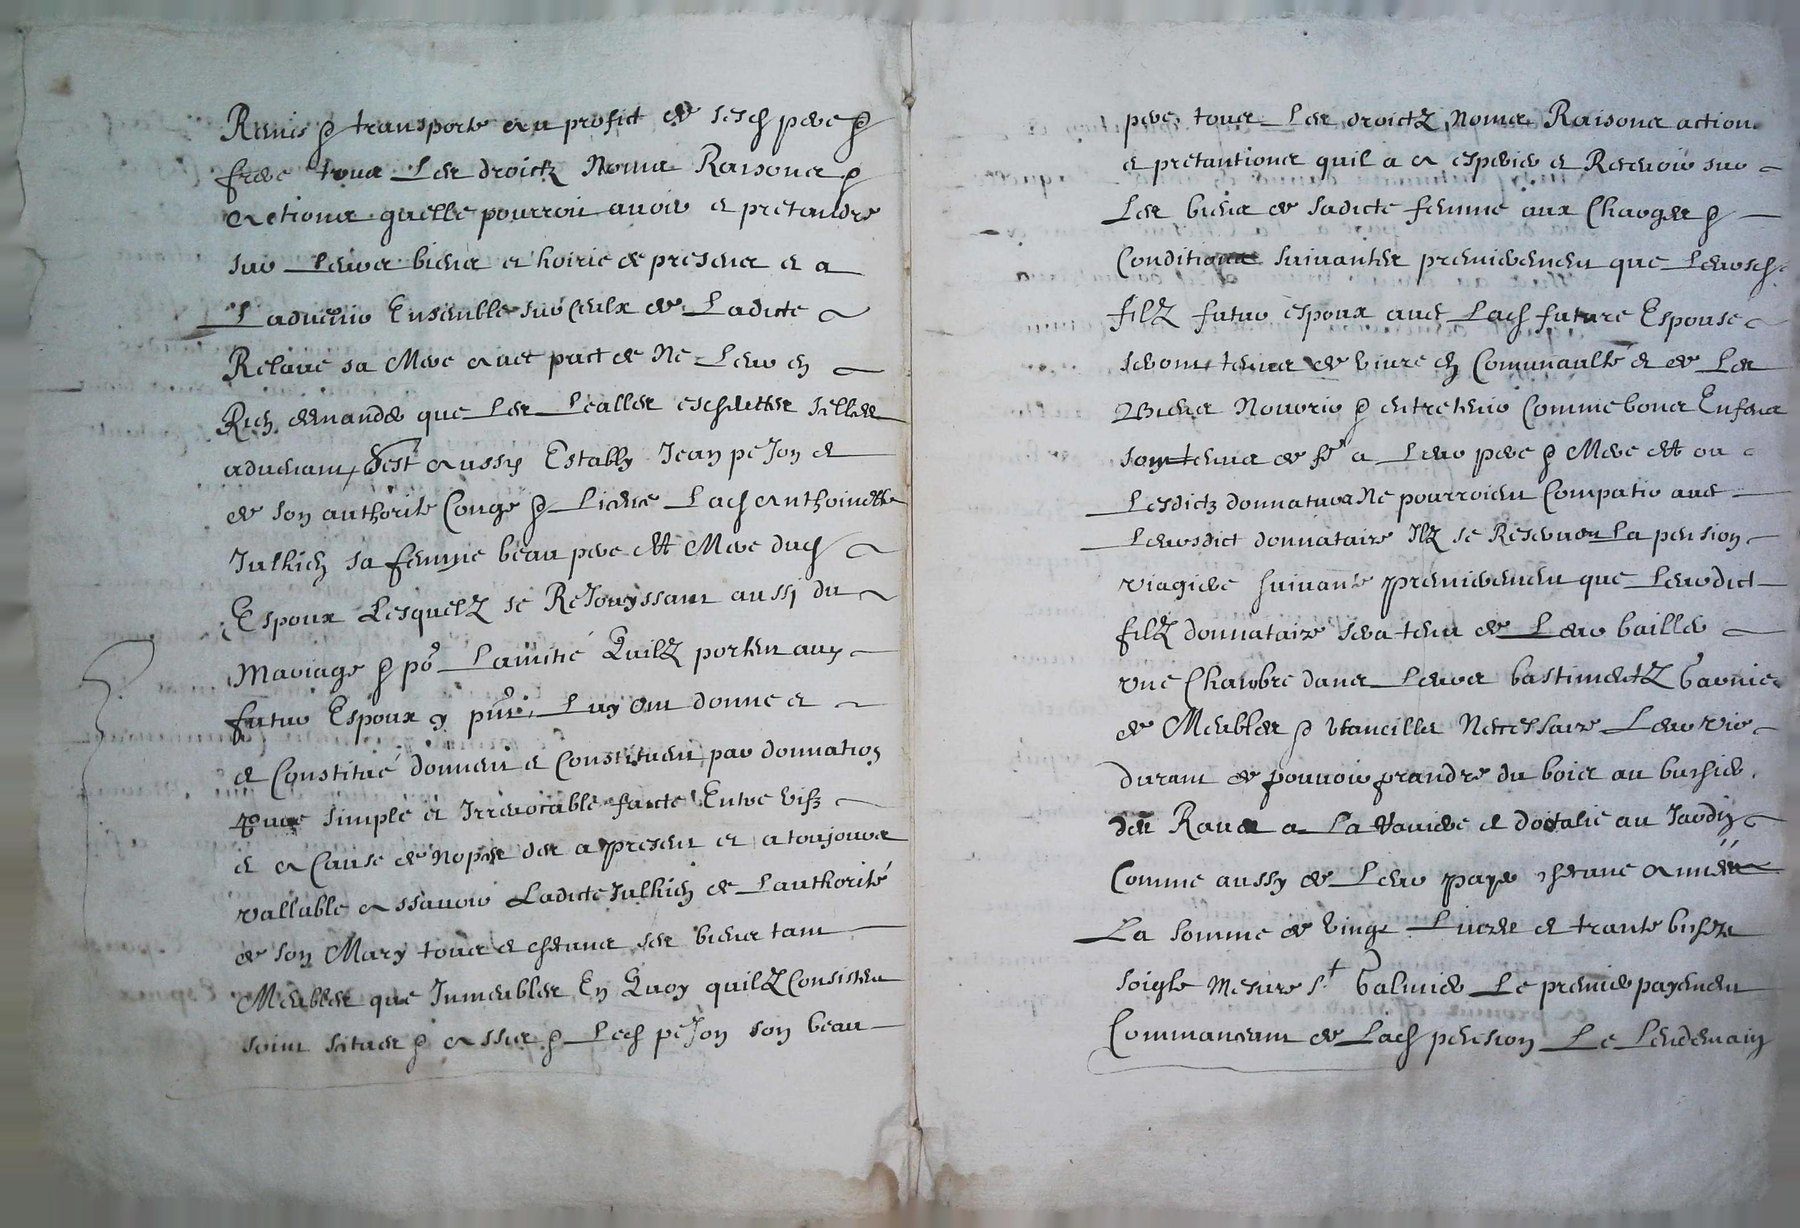 Remis & transporte au profit de sesd pere &
frere tous les droictz Noms Raisons &
actions quelle pourroit avoir et pretandre
sur leurs biens et hoirie de presens et a
Ladvenir Ensemble sur ceulx de Ladicte
Relaue sa Mere avec pact de Ne leur en
Rien demander que les lealles escheuttes sElles
advenant, Sest aussy Estably Jean peJon et
de son authorite Conge & Licence Lad Anthoinette
Julhien sa femme beau pere et Mere dud
Espoux Lesquelz se ReJouyssant aussi du
Mariage & por Lamitie Quilz portent aux
futur Espoux luy ont donne et
et Constitué donnent et Constituent par donnation
pure simple et Irrevocable faicte Entre vifz
et a Cause de Nopces des a present et a toujours
vallable assavoir Ladicte Julhien de Lauthorité
de son Mary tous et chascuns ses biens tant
Meubles que Immeubles En Quoy quilz Consistent
soint situes & assis & Led peJon son beau
pere tous les droictz Noms Raisons action
et pretantions quil a et espere et Recevoir sur
les biens de sadicte femme aux Charges &
Conditions suivantes premierement que leursd
filz futur espoux avec Lad future Espouse
seront tenus de vivre en Communaulté et de les
Nourrir & entretenir Comme bons Enfens
sont tenus de fe a leur pere & Mere et ou
Lesdictz donnateurs Ne pourroient Compatir avec
leursdict donnataire Ilz se Reservent la pension
viagere suivante premierement que leurdict
filz donnataire sera tenu de leur bailler
une Chambre dans leurs bastimentz Garnie
de Meubles & Utancilles Necessaire leur vie
durant de pouvoir prandre du bois au buchier
des Raves a La Raviere et dortalie au Jardin
Comme aussy de leur payer chascune année
La somme de vingt Livres et trante bichetz
soigle Mesure St Galmier Le premier payement
Commancant de Lad pension Le Lendemain